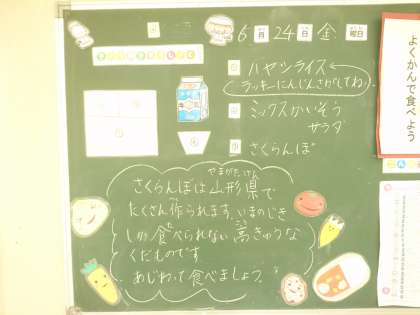 6月24日 金曜日
ハヤシライス
ラッキーにんじんさがしてね
ミックスかいそう
サラダ
さくらんぼ
やまがたけん
さくらんぼは山形県で
たくさん作られます。いまのじき
しか食べられない高きゅうな
くだものです
あじわって食べましょう。
よくかんで食べよう